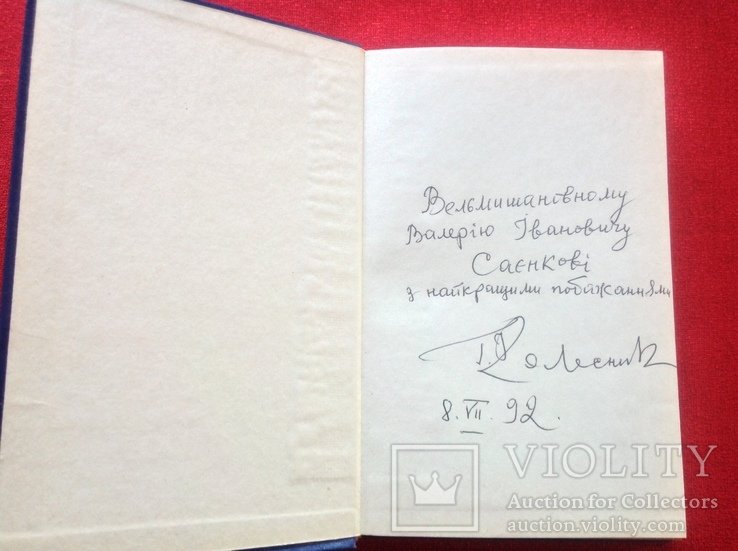 Вельмишановному
Валерію Івановичу
Саєнкові
з найкращими побажаннями
І. Колесник
8. VII. 92.
VIOLITY
Auction for Collectors
auction.violity.com